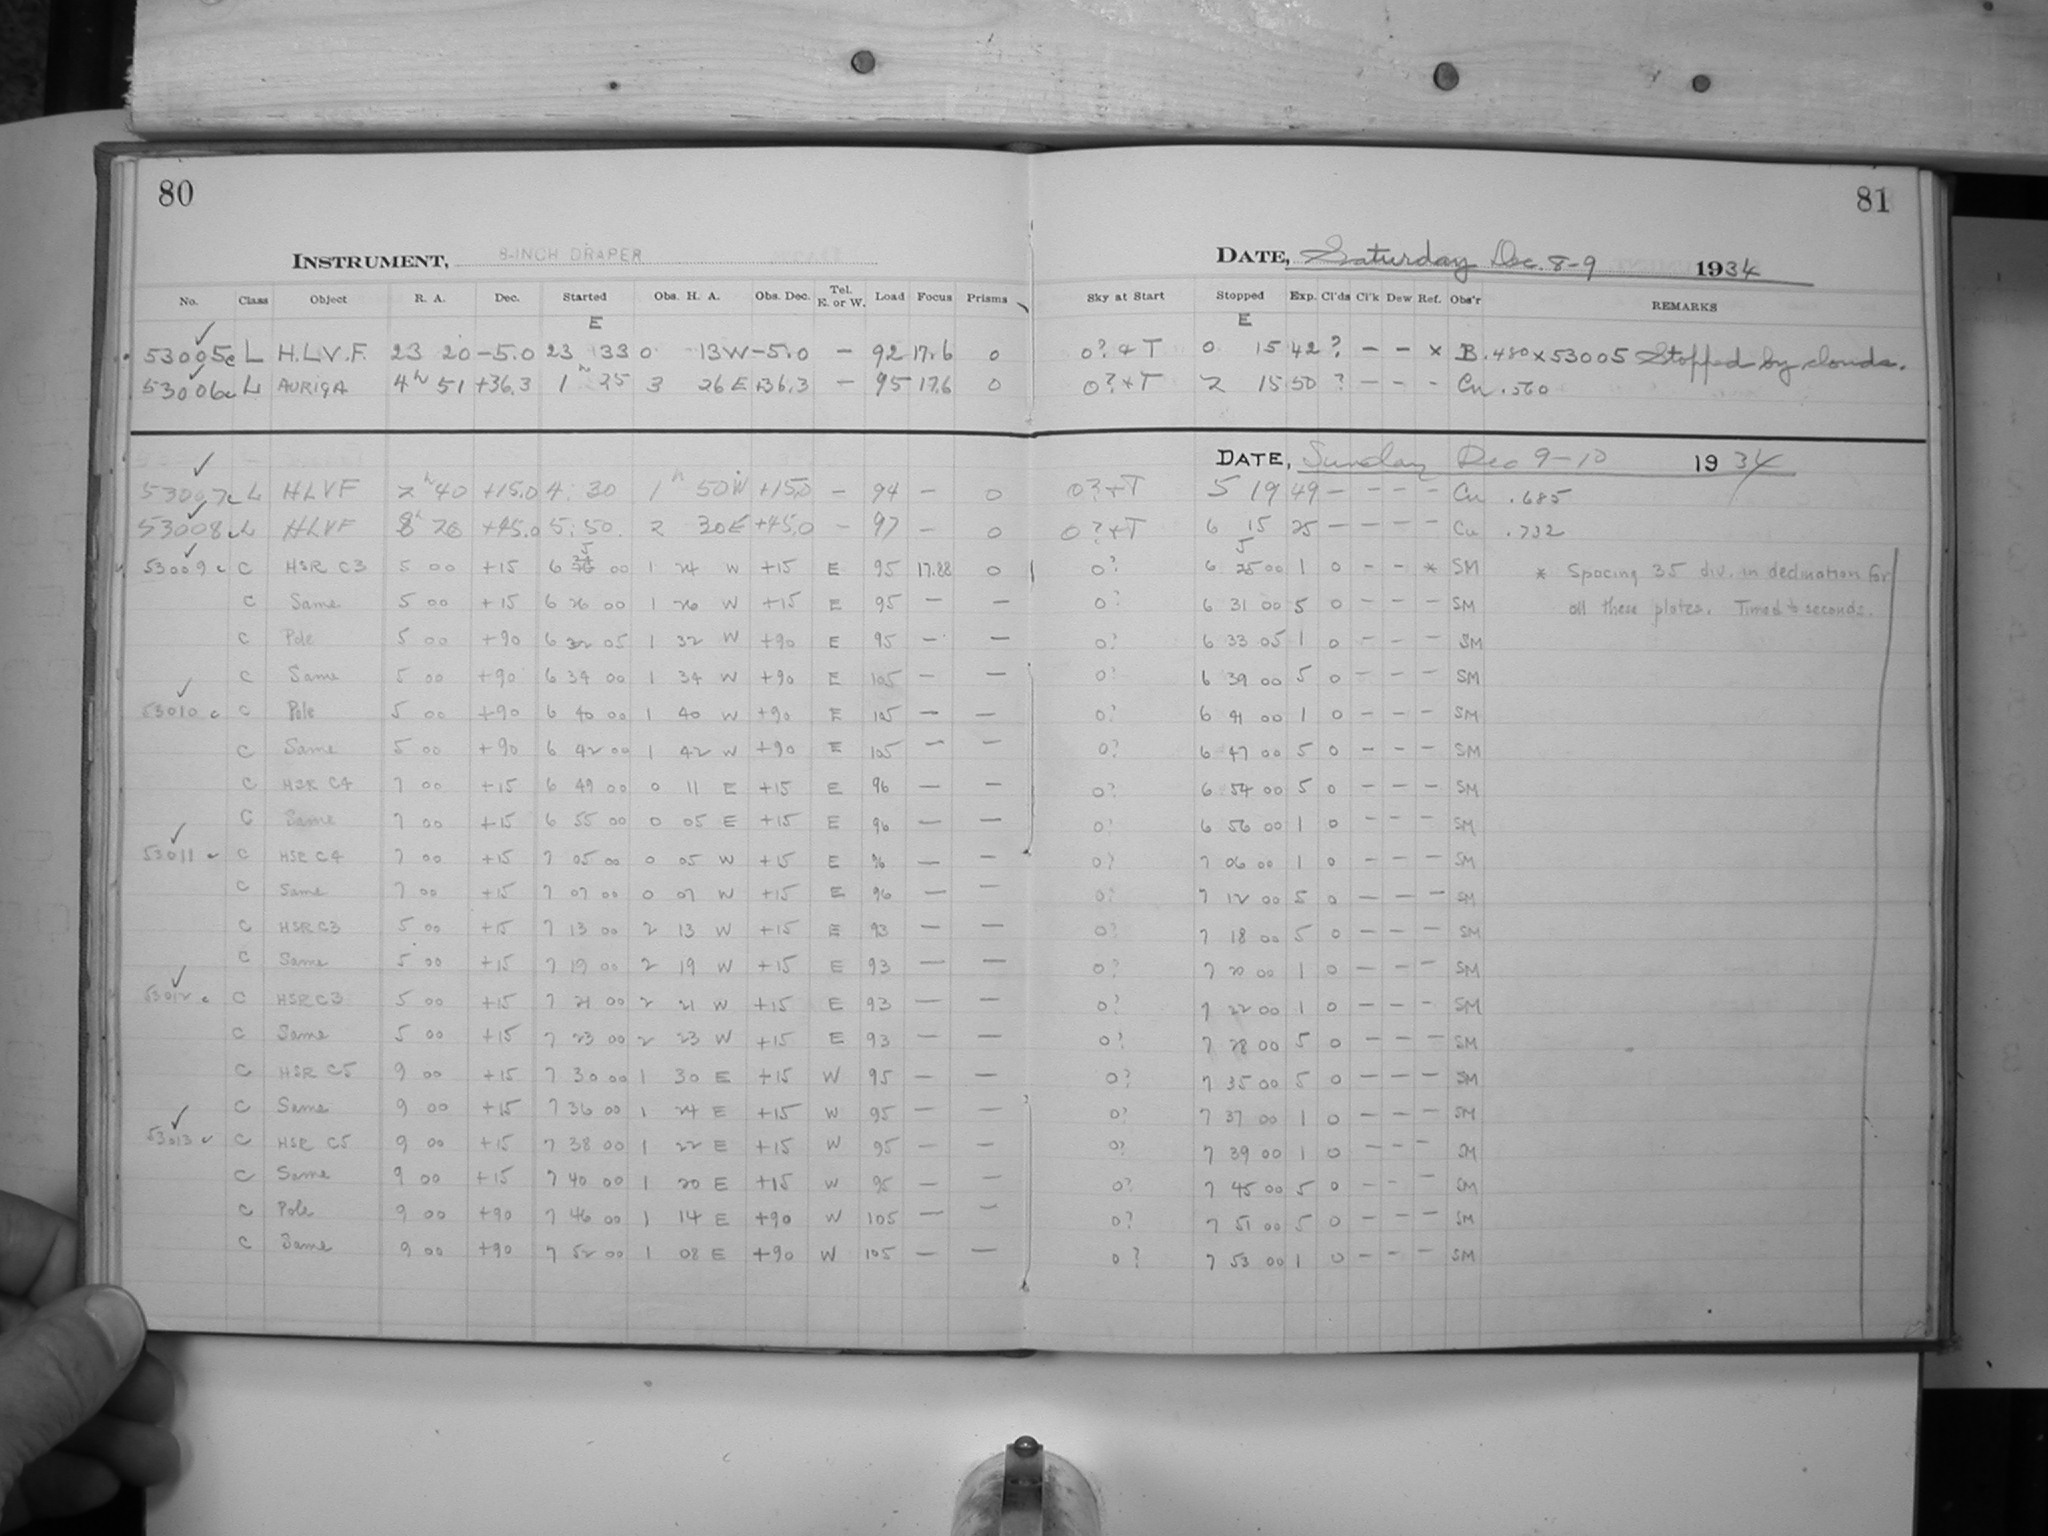 80
81
INSTRUMENT, 8-INCH DRAPER
DATE, Saturday Dec. 8-9 1934
No. Class Object R. A. Dec. Started Obs. H. A. Obs. Dec. Tel. E. or W. Load Focus Prisms Sky at Start Stopped Exp. Cl'ds Cl'k Dew Ref. Obs'r REMARKS
E E
53005c L H.L.V.F. 23 20 -5.0 23 33 0 13W -5.0 - 92 17.6 0 0? & T 0 15 42 ? - - x B. .480 x 53005 Stopped by clouds.
53006c L AURIGA 4h 51 +36.3 1h 25 3 26E +36.3 - 95 17.6 0 0? + T 2 15 50 ? - - - Cu .560
DATE, Sunday Dec 9-10 1934
53007c L HLVF 2h 40 +15.0 4: 30 1h 50W +15.0 - 94 - 0 0? + T 5 19 49 - - - - Cu .685
53008c L HLVF 8h 20 +45.0 5: 50. 2 30E +45.0 - 97 - 0 0? + T 6 15 25 - - - - Cu .732
53009c C HSR C3 5 00 +15 6 00 1 24 W +15 E 95 17.88 0 0? 6 25 00 1 0 - - * SM * Spacing 35 div. in declination for
C Same 5 00 +15 6 26 00 1 26 W +15 E 95 - - 0? 6 31 00 5 0 - - - SM all these plates. Timed to seconds.
C Pole 5 00 +90 6 32 05 1 32 W +90 E 95 - - 0? 6 33 05 1 0 - - - SM
C Same 5 00 +90 6 34 00 1 34 W +90 E 105 - - 0? 6 39 00 5 0 - - - SM
53010c C Pole 5 00 +90 6 40 00 1 40 W +90 E 105 - - 0? 6 41 00 1 0 - - - SM
C Same 5 00 +90 6 42 00 1 42 W +90 E 105 - - 0? 6 47 00 5 0 - - - SM
C HSR C4 7 00 +15 6 49 00 0 11 E +15 E 96 - - 0? 6 54 00 5 0 - - - SM
C Same 7 00 +15 6 55 00 0 05 E +15 E 96 - - 0? 6 56 00 1 0 - - - SM
53011c C HSR C4 7 00 +15 7 05 00 0 05 W +15 E 96 - - 0? 7 06 00 1 0 - - - SM
C Same 7 00 +15 7 07 00 0 07 W +15 E 96 - - 0? 7 12 00 5 0 - - - SM
C HSR C3 5 00 +15 7 13 00 2 13 W +15 E 93 - - 0? 7 18 00 5 0 - - - SM
C Same 5 00 +15 7 19 00 2 19 W +15 E 93 - - 0? 7 20 00 1 0 - - - SM
53012c C HSR C3 5 00 +15 7 21 00 2 21 W +15 E 93 - - 0? 7 22 00 1 0 - - - SM
C Same 5 00 +15 7 23 00 2 23 W +15 E 93 - - 0? 7 28 00 5 0 - - - SM
C HSR C5 9 00 +15 7 30 00 1 30 E +15 W 95 - - 0? 7 35 00 5 0 - - - SM
C Same 9 00 +15 7 36 00 1 24 E +15 W 95 - - 0? 7 37 00 1 0 - - - SM
53013c C HSR C5 9 00 +15 7 38 00 1 22 E +15 W 95 - - 0? 7 39 00 1 0 - - - SM
C Same 9 00 +15 7 40 00 1 20 E +15 W 95 - - 0? 7 45 00 5 0 - - - SM
C Pole 9 00 +90 7 46 00 1 14 E +90 W 105 - - 0? 7 51 00 5 0 - - - SM
C Same 9 00 +90 7 52 00 1 08 E +90 W 105 - - 0? 7 53 00 1 0 - - - SM